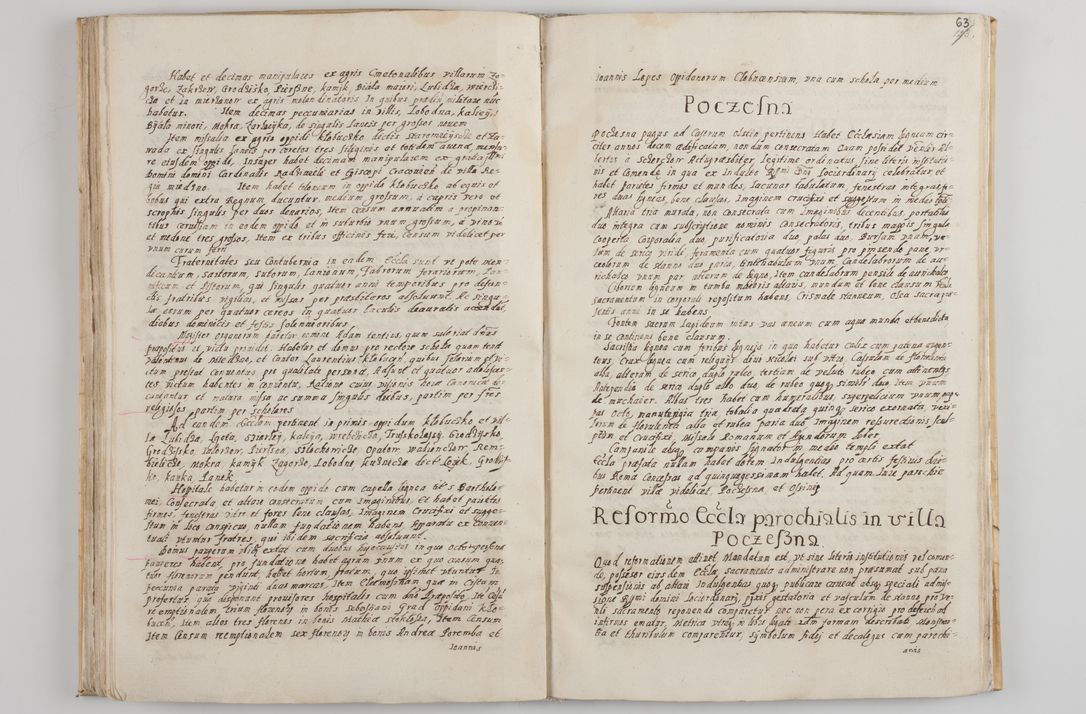 Habet et decimas manipulares ex agris Cmetonalibus villarum Za=
gorze, Zakrzew, Grodzisko, Pierzne, kamyk, Biala maiori, Lubidza,
habetur. Item decimas pecuniarias in villis, Lobodna, kaliey,
Byala minori, Mokra, Zarbiyka, de singulis laneis per grossos novem
Item missalia ex agro oppidi Klobucko dictis
wado ex singulis laneis per coretos tres siliginis et totidem auenæ, mensu=
re eiusdem oppidi, Insuper habet decimam manipularem ex gratia Illmi
Domini domini Cardinalis Radziwile et Episcopi Cracovien de villa Re=
gia miedzno. Item habet telaneum in oppido Klobucko ab equis et
bobus qui extra Regnum ducuntur. medium grossum, a capris vero et
scrophis singulis per duos denarios, Item Censum annuatim a propinan=
tibus ceruisiam in eodem oppido et in suburbio unum grossum, a vinoq
et medone tres grossos, Item ex tribus officinis feri, Censum videlicet per
unum currum ferri
Fraternitates seu Contubernia in eadem Eccla sunt ut pote men=
dicantum, sartorum, sutorum, Lanionum, Fabrorum ferariorum,
nificum et Pistorum, qui singulis quatuor anni temporibus pro defunc=
tis fratribus vigilias, et missas per præsbiteros absoluunt. Ac singu=
la earum per quatuor cereos in quatuor laculis deauratis accendit
diebus dominicis et festis solennioribus
Magister organorum pariter nomine Adam tentius, quem suleriat duns
præpositus et victu prouidet. Habetur et domus pro rectore scholæ quam tenet
Valentinus de miedzno, et Cantor Laurentius Klobucen, quibus salarium et vi=
ctum præstat Conventus pro qualitate personæ, Adsunt et quatuor adolescen=
tes victum habentes in conventu, Ratione cuius prouisionis horæ Canonicæ de=
cantantur et matura missa ac summa singulis diebus, partim per fratres
religiosos partim per scholares
Ad eandem Ecclesiam pertinent in primis oppidum Klobucko et vil=
la Zubidza, Lgota, Szarley, kaleja, Wrebczycko, Truskolassy, Grodzysko,
Grodzysko, Zakrzew, Pierzsen, Szlachecinske, Opatow, walenczow, Rem=
bielicze, Mokra, kamyk, Zagorze, Lobodne kuznicza dict Loyk, Grodzis
ko, kawka Panek
Hospitale habetur in eodem oppido cum capella lignea tt s Bartholo=
mei, Consecrata et altare consecratum cum Imaginibus, et habet parietes
firmos, fenestras vitro et fores bene clausas, Imaginem Crucifixi et sugge=
stum in loco conspicuo, nullam fundationem habens, Apparatu ex conuen=
tuali utuntur fratres, qui ibidem sacrificia absoluunt.
Domus pauperum ibi extat cum duobus hypocaustis in quo octo personæ
pauperes habent, pro fundatione habet agrum unum ex quo censum qua=
tuor florenorum pendunt, habet hortum, pratum, quo ipsimet utuntur, In
pecunia parata viginti duas marcas, Item Elæmosynam quæ in Cistam
profertur, quo disponunt prouisores hospitalis cum dno Præposito. Ite Cesu
re emptionalem trium florenoq in bonis Sebastiani Grad oppidani Klo=
bucen. Item alios tres florenos in bonis Mathiæ stoklosa, Item Censum
Item Censum reemptionalem sex florenoq in bonis Andreæ Poremba et
Ioannis
63
Ioannis Lopes opidanorum Clobucensium, una cum schola per medium
Poczesna
Poczesna pagus ad Castrum olstin pertinens Habet Ecclesiam ligneam cir=
citer annos decem ædificatam, nondum consecratam Quam possidet Venlis Al=
bertus a Archypræsbiter, legitime ordinatus sine literis institutio=
nis et Comenda in qua ex Indulto Rmi Dni locisordinarij celebratur et
habet parietes firmos et mundos, lacunar tabulatum, fenestras integras
res duas ligneas, bene clausas, Imaginem crucifixi et suggestum in medio tpli
Altaria tria nuda, non consecrata cum Imaginibus decentibus, portatilia
duo integra cum subscriptione nominis consecratoris, tribus mappis singula
Cooperta, Corporalia duo purificatoria duo pallas duas. Bursam unam,
sum de serico viridi, feramenta cum quatuor figuris pro
de stanno duo paria, tinthabulum unum, Candelabrorum de au=
richalco unum par, alterum de ligno, Item candelabrum pensile de aurichalco
Ciborium ligneum in tumba maioris altaris, mundum et bene clausum Vbi
sacramentum in corporali repositum habens, Crismale stanneum, Olea sacra
sentis anni in se habens
Fontem sacrum lapideum intus vas æneum cum aqua munda, et benedicta
in se continens bene clausum.
Sacristia lignea cum foribus ligneis in qua habetur calix cum patena argen=
teus, Crux lignea cum reliquijs diui Nicolai sub vitro, Casulam de
alba, alteram de serico duplo rubeo, tertiam de veluto rubeo cum attinentijs
Antependia de serico duplo albo duo, de rubeo quoq simili duo, Item unum
de muchaier. Albas tres habet cum humeralibus, superpelicium unum map=
pas octo, manutergia tria, tobalia quadrata quinq serico exornata, vexi=
lorum de alba et rubea paria duo Imaginem resurectionis scul=
ptam et Crucifixi, Missale Romanum et Agendorum liber.
Campanile absq campanis signator in medio templi extat
Eccla præfata nullam habet dotem Indulgentias pro certis festiuis die=
bus Roma Concessas ad quinquagessimam habet. Ad quam Iure parochie
pertinent villæ videlicet, Poczesna, et Ossiny
Reformo Ecclæ parochialis in villa
Poczeszna
Quod reformationem attinet Mandatum est, ut sine literis institutionis vel comen=
dæ, possesor eiusdem Ecclæ, sacramenta administrare non præsumat sub pæna
suspensionis ab altari Indulgentias quoq, publicare caueat absq speciali admis=
sione Rymi domini lociordinarij, pixis argentaria et vasculum de stanno pro ve=
nli sacramento reponendo comparetur nec non pera ex corrigia pro deferendo ad
infirmos ematur, Metrica utraq in libris ligatis iuxta formam describatur Monstran=
tia et thuribulum comparentur, symbolum fidej et decalogus cum parochi=
anis